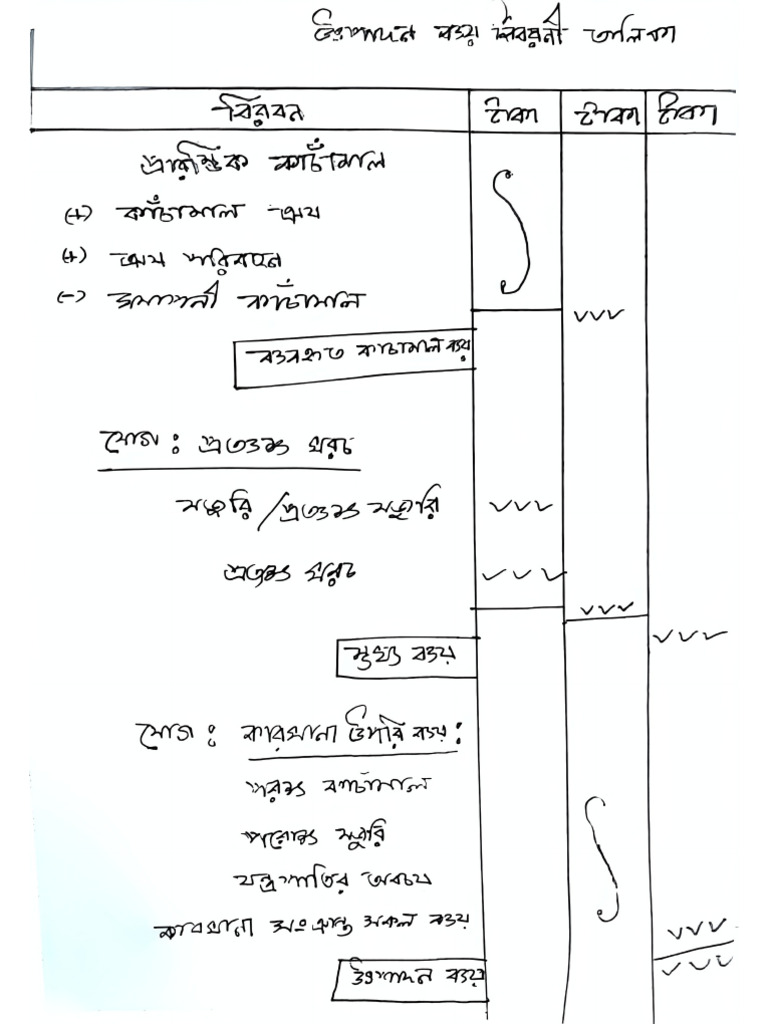 উৎপাদন ব্যয় বিবরনী তালিকা
বিবরন টাকা টাকা টাকা
প্রারম্ভিক কাঁচামাল
(+) কাঁচামাল ক্রয়
(+) ক্রয় পরিবহন
(-) সমাপনী কাঁচামাল
ব্যবহৃত কাচামাল ব্যয়
যোগ : প্রত্যক্ষ খরচ
মজুরি / প্রত্যক্ষ মজুরি
প্রত্যক্ষ খরচ
মুখ্য ব্যয়
যোগ : কারখানা উপরি ব্যয় :
পরক্ষ কাঁচামাল
পরোক্ষ মজুরি
যন্ত্রপাতির অবচয়
কারখানা সংক্রান্ত সকল ব্যয়
উৎপাদন ব্যয়